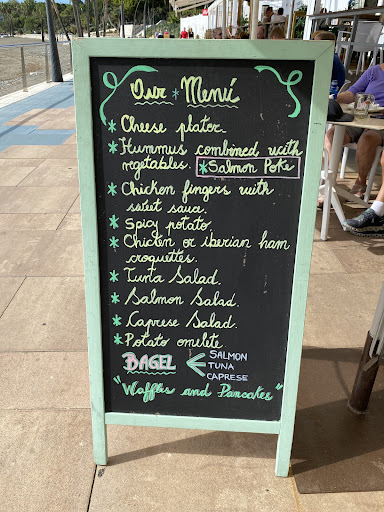 Our * Menú
* Cheese plater.
* Hummus combined with
vegetables. * Salmon Poke
* Chicken fingers with
sweet sauce.
* Spicy potato.
* Chicken or iberian ham
croquettes.
* Tuna Salad.
* Salmon Salad.
* Caprese Salad.
* Potato omelete
BAGEL SALMON
TUNA
CAPRESE
"Waffles and Pancakes"